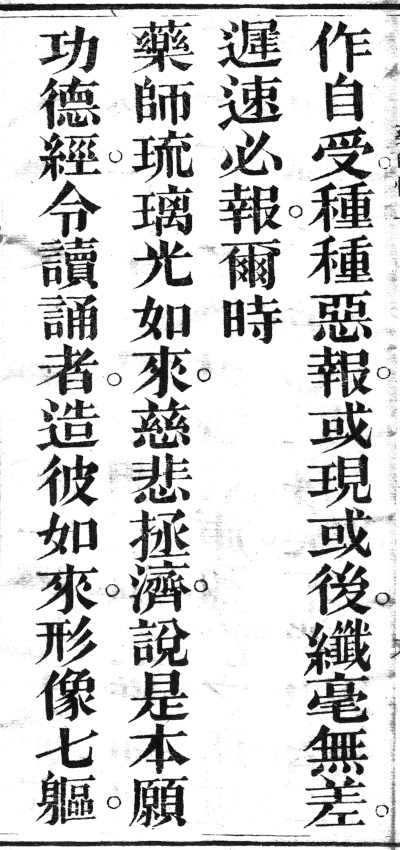 作自受。種種惡報。或現或後。纖毫無差。
遲速必報。爾時
藥師琉璃光如來。慈悲拯濟。說是本願
功德經。令讀誦者。造彼如來。形像七軀。